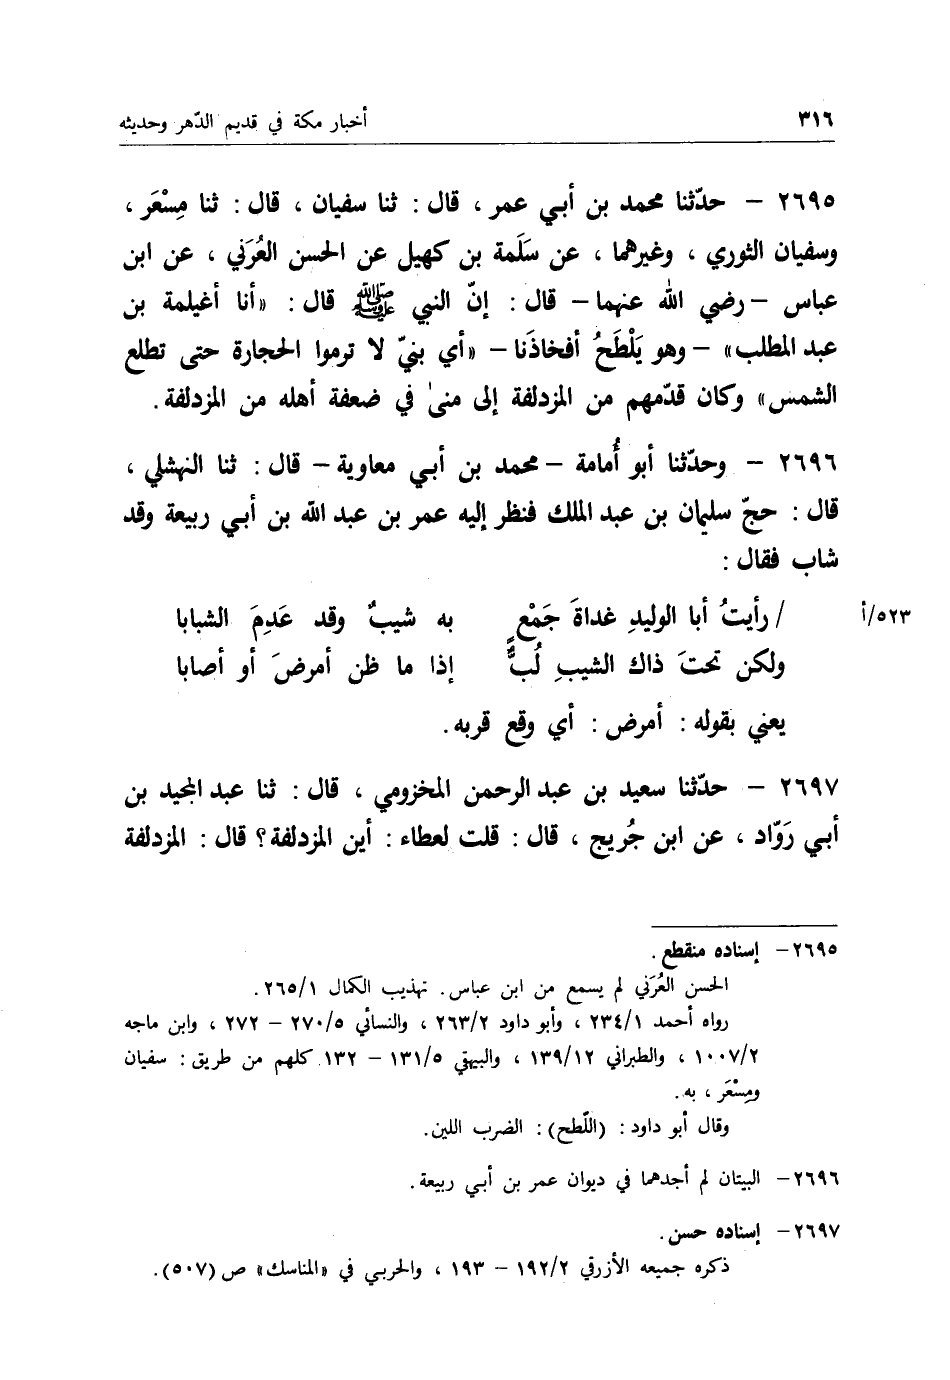 ٣١٦ أخبار مكة في قديم الدّهر وحديثه
٢٦٩٥ – حدّثنا محمد بن أبي عمر ، قال : ثنا سفيان ، قال : ثنا مِسْعَر ،
وسفيان الثوري ، وغيرهما ، عن سَلَمة بن كهيل عن الحسن العُرَني ، عن ابن
عباس – رضي الله عنهما – قال : إنّ النبي ﷺ قال : «أنا أغيلمة بن
عبد المطلب» – وهو يَلْطَحُ أفخاذَنا – «أي بنيّ لا ترموا الحجارة حتى تطلع
الشمس» وكان قدّمهم من المزدلفة إلى منىٰ في ضعفة أهله من المزدلفة .
٢٦٩٦ – وحدّثنا أبو أُمامة – محمد بن أبي معاوية – قال : ثنا النهشلي ،
قال : حجّ سليمان بن عبد الملك فنظر إليه عمر بن عبد الله بن أبي ربيعة وقد
شاب فقال :
٥٢٣/أ / رأيتُ أبا الوليدِ غداةَ جَمْعٍ به شيبٌ وقد عَدِمَ الشبابا
ولكن تحتَ ذاك الشيبِ لُبٌّ إذا ما ظن أمرضَ أو أصابا
يعني بقوله : أمرض : أي وقع قربه .
٢٦٩٧ – حدّثنا سعيد بن عبد الرحمن المخزومي ، قال : ثنا عبد المجيد بن
أبي رَوّاد ، عن ابن جُريج ، قال : قلت لعطاء : أين المزدلفة ؟ قال : المزدلفة
٢٦٩٥ – إسناده منقطع .
الحسن العُرَني لم يسمع من ابن عباس . تهذيب الكمال ٢٦٥/١ .
رواه أحمد ٢٣٤/١ ، وأبو داود ٢٦٣/٢ ، والنسائي ٢٧٠/٥ – ٢٧٢ ، وابن ماجه
١٠٠٧/٢ ، والطبراني ١٣٩/١٢ ، والبيهقي ١٣١/٥ – ١٣٢ كلهم من طريق : سفيان
ومِسْعَر ، به .
وقال أبو داود : (اللّطح) : الضرب اللين .
٢٦٩٦ – البيتان لم أجدهما في ديوان عمر بن أبي ربيعة .
٢٦٩٧ – إسناده حسن .
ذكره جميعه الأزرقي ١٩٢/٢ – ١٩٣ ، والحربي في «المناسك» ص (٥٠٧) .